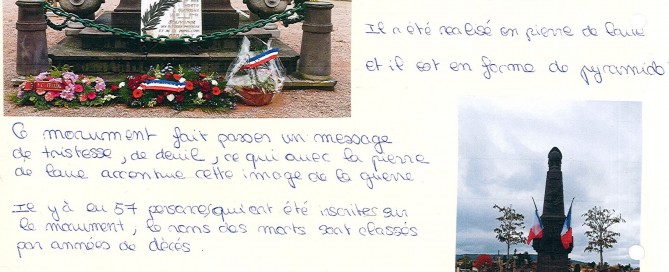 Il a été realisé en pierre de lave
et il est en forme de pyramide
Ce monument fait passer un message
de tristesse, de deuil, ce qui avec la pierre
de lave accentue cette image de la guerre
Il y à eu 57 personnes qui ont été inscrites sur
le monument, le noms des morts sont classés
par années de décès.